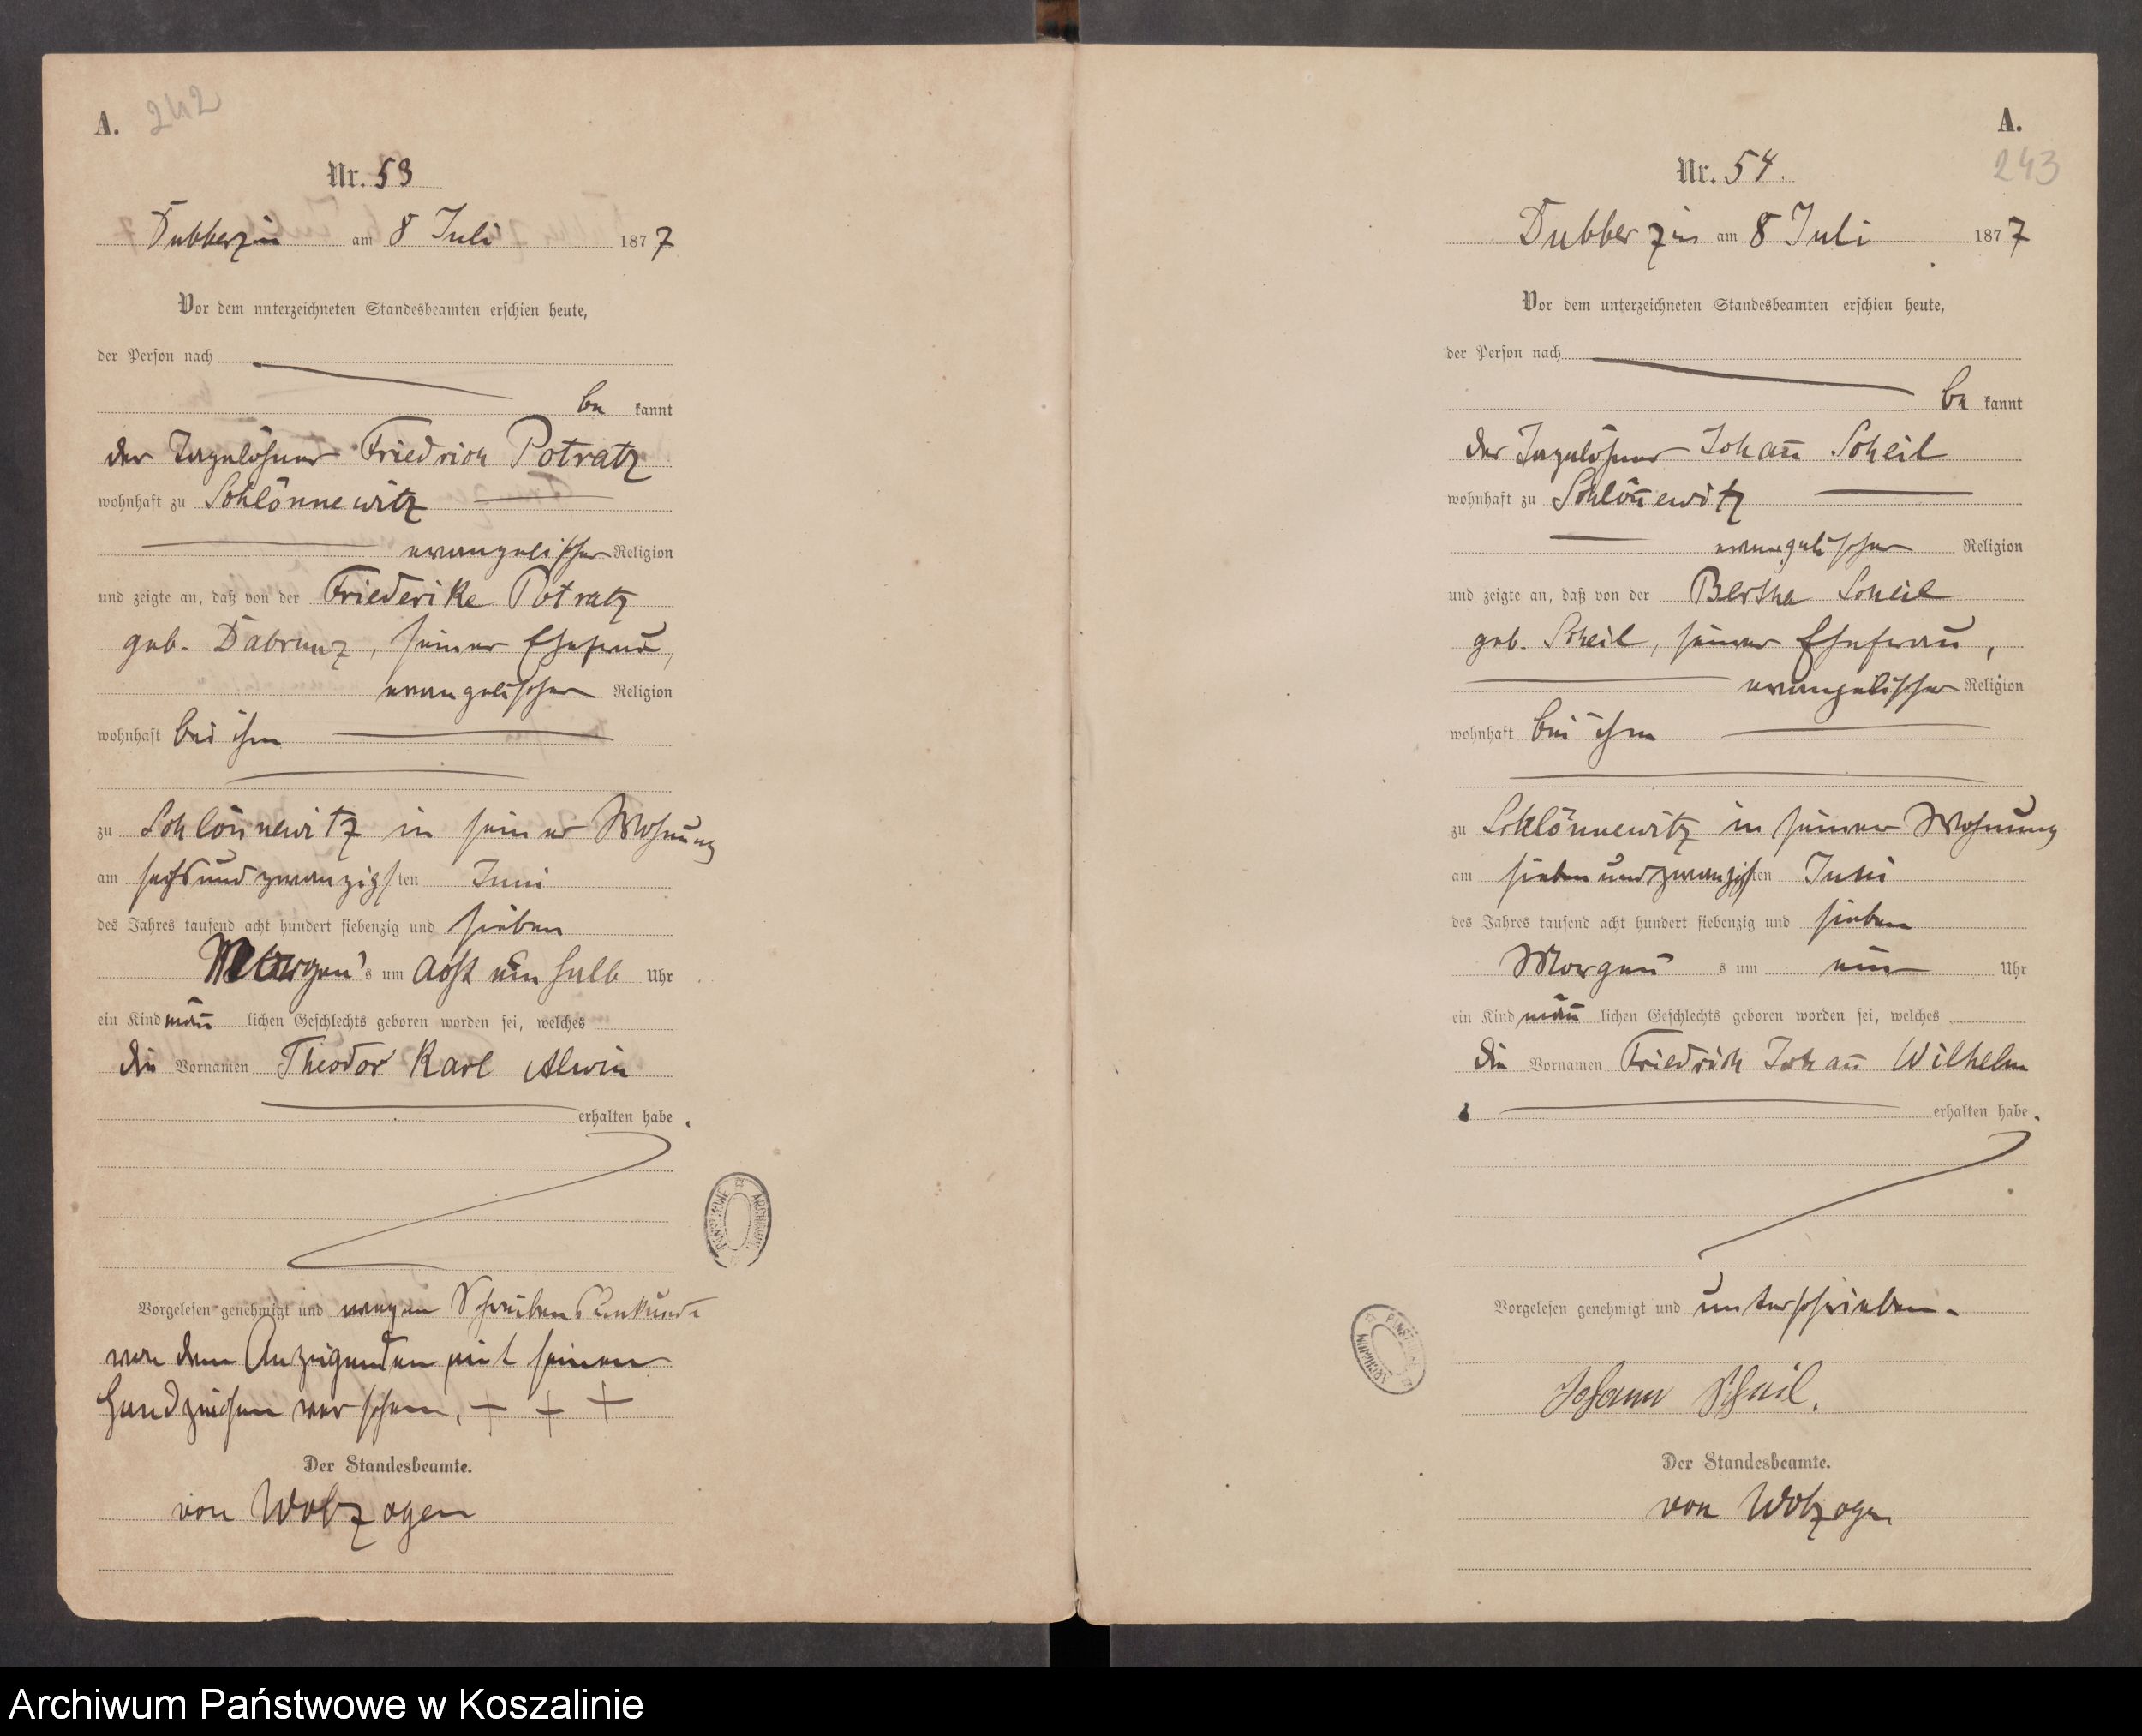 A. 242
Nr. 53
Dubberzin am 8 Juli 1877
Vor dem unterzeichneten Standesbeamten erschien heute,
der Person nach
be kannt
der Tagelöhner Friedrich Potratz
wohnhaft zu Schlönnewitz
evangelischer Religion
und zeigte an, daß von der Friederike Potratz
geb. Dabrunz, seiner Ehefrau,
evangelischer Religion
wohnhaft bei ihm
zu Schlönnewitz in seiner Wohnung
am sechsundzwanzigsten Juni
des Jahres tausend acht hundert siebenzig und sieben
Morgen's um acht ein halb Uhr
ein Kind män̄ lichen Geschlechts geboren worden sei, welches
die Vornamen Theodor Karl Alwin
erhalten habe.
Vorgelesen genehmigt und wegen Schreibensunkunde
von dem Anzeigenden mit seinem
Handzeichen versehen, + + +
Der Standesbeamte.
von Wolzogen
ARCHIWUM PAŃSTWOWE
A.
243
Nr. 54.
Dubberzin am 8 Juli 1877
Vor dem unterzeichneten Standesbeamten erschien heute,
der Person nach
be kannt
der Tagelöhner Johan̄ Scheil
wohnhaft zu Schlön̄ewitz
evangelischer Religion
und zeigte an, daß von der Bertha Scheil
geb. Scheil, seiner Ehefrau,
evangelischer Religion
wohnhaft bei ihm
zu Schlönnewitz in seiner Wohnung
am siebenundzwanzigsten Juni
des Jahres tausend acht hundert siebenzig und sieben
Morgen s um ein Uhr
ein Kind män̄ lichen Geschlechts geboren worden sei, welches
die Vornamen Friedrich Johan̄ Wilhelm
erhalten habe.
Vorgelesen genehmigt und unterschrieben.
Johann Scheil.
Der Standesbeamte.
von Wolzogen
ARCHIWUM PAŃSTWOWE
Archiwum Państwowe w Koszalinie